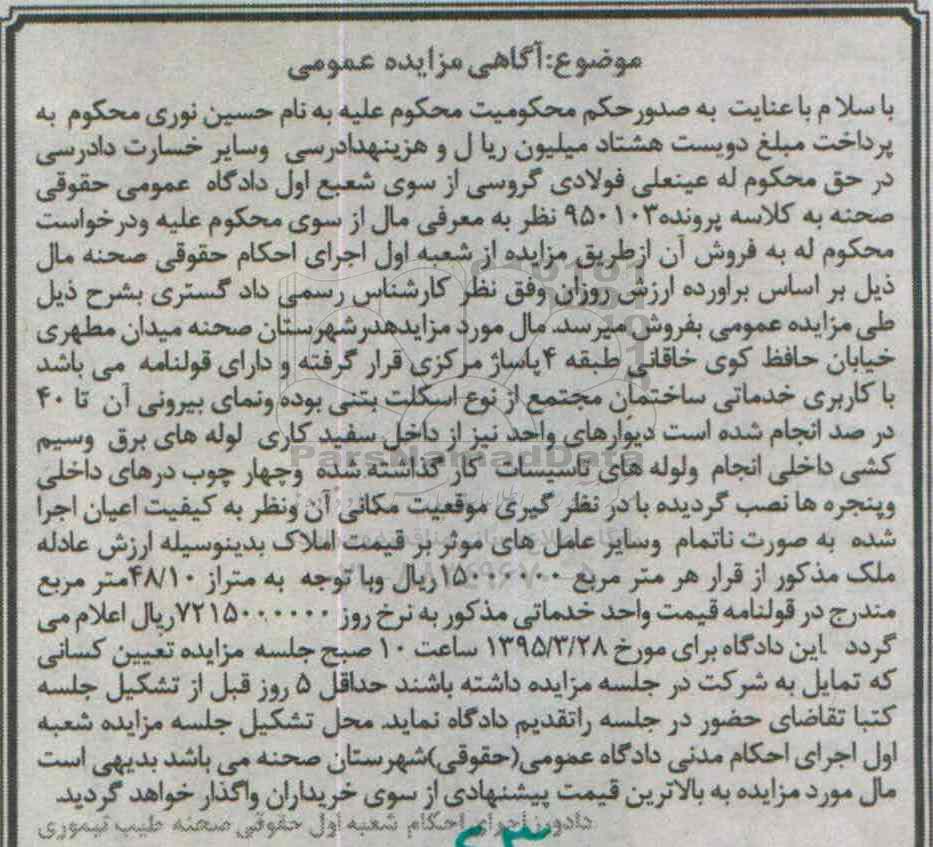 موضوع:آگاهی مزایده عمومی
با سلام با عنایت به صدورحکم محکومیت محکوم علیه به نام حسین نوری محکوم به
پرداخت مبلغ دویست هشتاد میلیون ریا ل و هزینهدادرسی وسایر خسارت دادرسی
در حق محکوم له عینعلی فولادی گروسی از سوی شعبع اول دادگاه عمومی حقوقی
صحنه به کلاسه پرونده۹۵۰۱۰۳ نظر به معرفی مال از سوی محکوم علیه ودرخواست
محکوم له به فروش آن ازطریق مزایده از شعبه اول اجرای احکام حقوقی صحنه مال
ذیل بر اساس براورده ارزش روزان وفق نظر کارشناس رسمی داد گستری بشرح ذیل
طی مزایده عمومی بفروش میرسد. مال مورد مزایدهدرشهرستان صحنه میدان مطهری
خیابان حافظ کوی خاقانی طبقه ۴پاساژ مرکزی قرار گرفته و دارای قولنامه می باشد
با کاربری خدماتی ساختمان مجتمع از نوع اسکلت بتنی بوده ونمای بیرونی آن تا ۴۰
در صد انجام شده است دیوارهای واحد نیز از داخل سفید کاری لوله های برق وسیم
کشی داخلی انجام ولوله های تاسیسات کار گذاشته شده وچهار چوب درهای داخلی
وپنجره ها نصب گردیده با در نظر گیری موقعیت مکانی آن ونظر به کیفیت اعیان اجرا
شده به صورت ناتمام وسایر عامل های موثر بر قیمت املاک بدینوسیله ارزش عادله
ملک مذکور از قرار هر متر مربع ۱۵۰۰۰۰۰۰ریال وبا توجه به متراز ۴۸/۱۰متر مربع
مندرج در قولنامه قیمت واحد خدماتی مذکور به نرخ روز ۷۲۱۵۰۰۰۰۰۰ریال اعلام می
گردد .این دادگاه برای مورخ ۱۳۹۵/۳/۲۸ ساعت ۱۰ صبح جلسه مزایده تعیین کسانی
که تمایل به شرکت در جلسه مزایده داشته باشند حداقل ۵ روز قبل از تشکیل جلسه
کتبا تقاضای حضور در جلسه راتقدیم دادگاه نماید. محل تشکیل جلسه مزایده شعبه
اول اجرای احکام مدنی دادگاه عمومی(حقوقی)شهرستان صحنه می باشد بدیهی است
مال مورد مزایده به بالاترین قیمت پیشنهادی از سوی خریداران واگذار خواهد گردید.
دادورز اجرای احکام شعبه اول حقوقی صحنه طیب تیموری
ParsNamadData